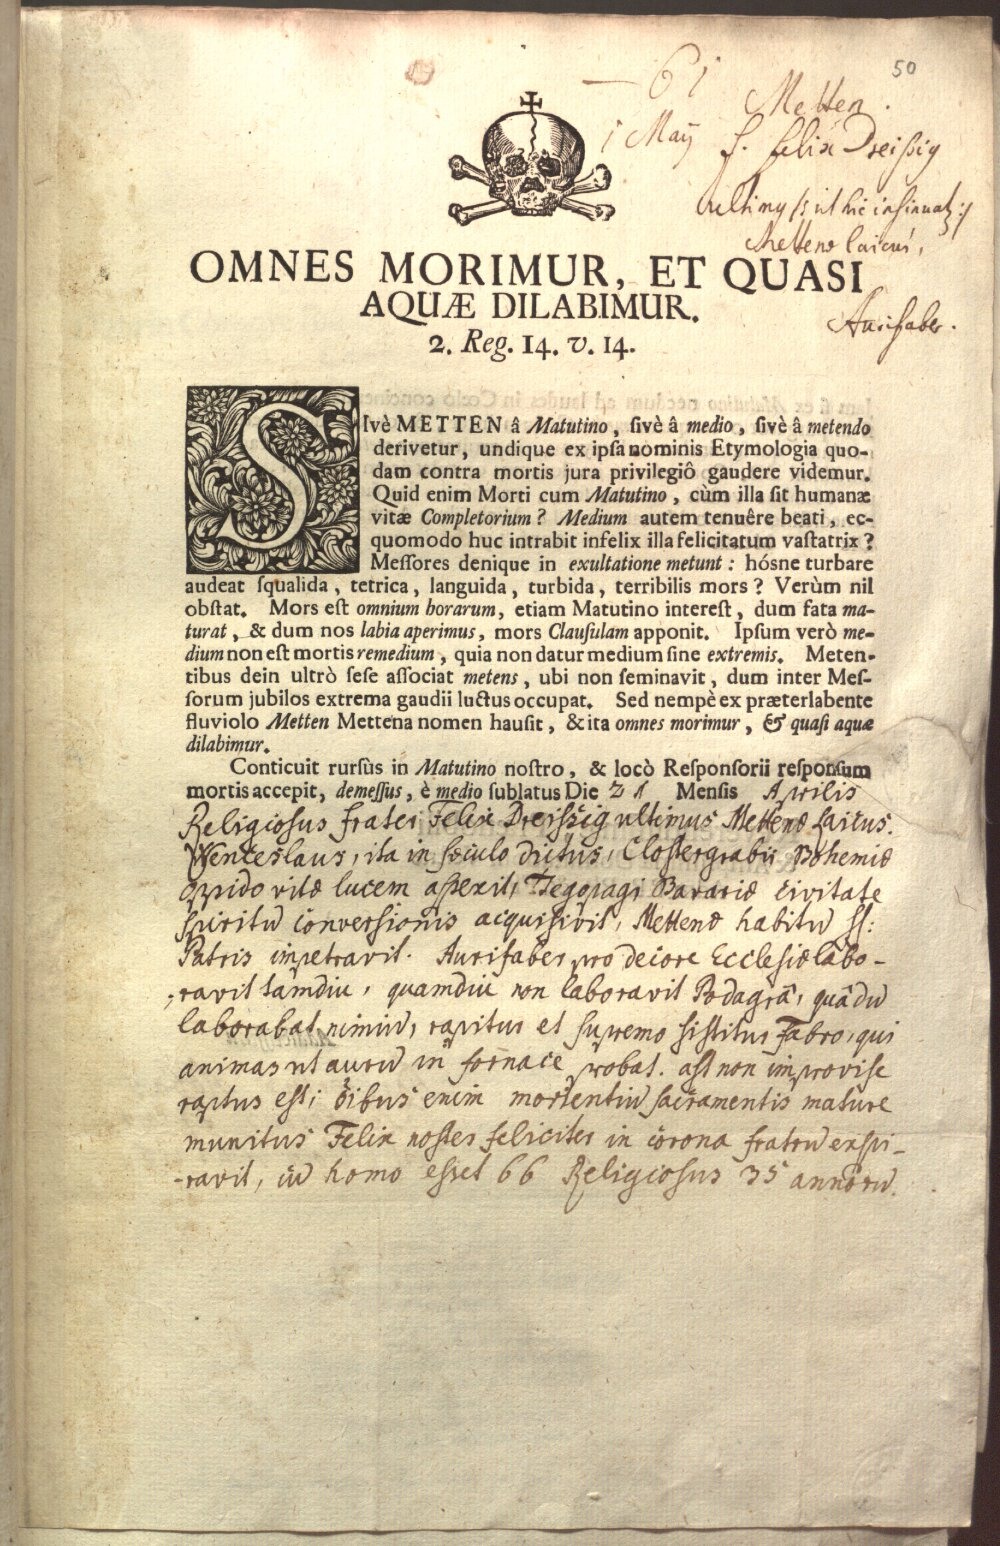 50
— 61
Metten.
1 Maÿ f. Felix Dreissig
ultimus /: ut hic insinuat :/
Mettenæ laicus,
Aurifaber.
OMNES MORIMUR, ET QUASI
AQUÆ DILABIMUR.
2. Reg. 14. v. 14.
SIvè METTEN â Matutino, ſivè â medio, ſivè â metendo
derivetur, undique ex ipſa nominis Etymologia quo-
dam contra mortis jura privilegiô gaudere videmur.
Quid enim Morti cum Matutino, cùm illa ſit humanæ
vitæ Completorium? Medium autem tenuêre beati, ec-
quomodo huc intrabit infelix illa felicitatum vaſtatrix?
Meſſores denique in exultatione metunt: hósne turbare
audeat ſqualida, tetrica, languida, turbida, terribilis mors? Verùm nil
obſtat. Mors eſt omnium horarum, etiam Matutino intereſt, dum fata ma-
turat, & dum nos labia aperimus, mors Clauſulam apponit. Ipſum verò me-
dium non eſt mortis remedium, quia non datur medium ſine extremis. Meten-
tibus dein ultrò ſeſe aſſociat metens, ubi non ſeminavit, dum inter Meſ-
ſorum jubilos extrema gaudii luctus occupat. Sed nempè ex præterlabente
fluviolo Metten Mettena nomen hauſit, & ita omnes morimur, & quaſi aquæ
dilabimur.
Conticuit rursùs in Matutino noſtro, & locò Reſponſorii reſponſum
mortis accepit, demeſſus, è medio ſublatus Die 21 Mensis Aprilis
Religiosus frater Felix Dreissig ultimus Mettenæ Laicus.
Wenceslaus, ita in sæculo dictus, Clostergrabii Bohemiæ
oppido vitæ lucem aspexit, Deggopagi Bavariæ civitate
spiritũ conversionis acquisivit, Mettenæ habitũ SS:
Patris impetravit. Aurifaber pro decore Ecclesiæ labo-
ravit tamdiu, quamdiu non laboravit Podagrâ, quâ dũ
laborabat nimiũ, rapitur et supremo sistitur Fabro, qui
animas ut aurũ in fornace probat. ast non improvise
raptus est; õibus enim morientiũ sacramentis mature
munitus Felix noster feliciter in corona fratrũ expi-
-ravit, cũ homo esset 66 Religiosus 35 annorũ.